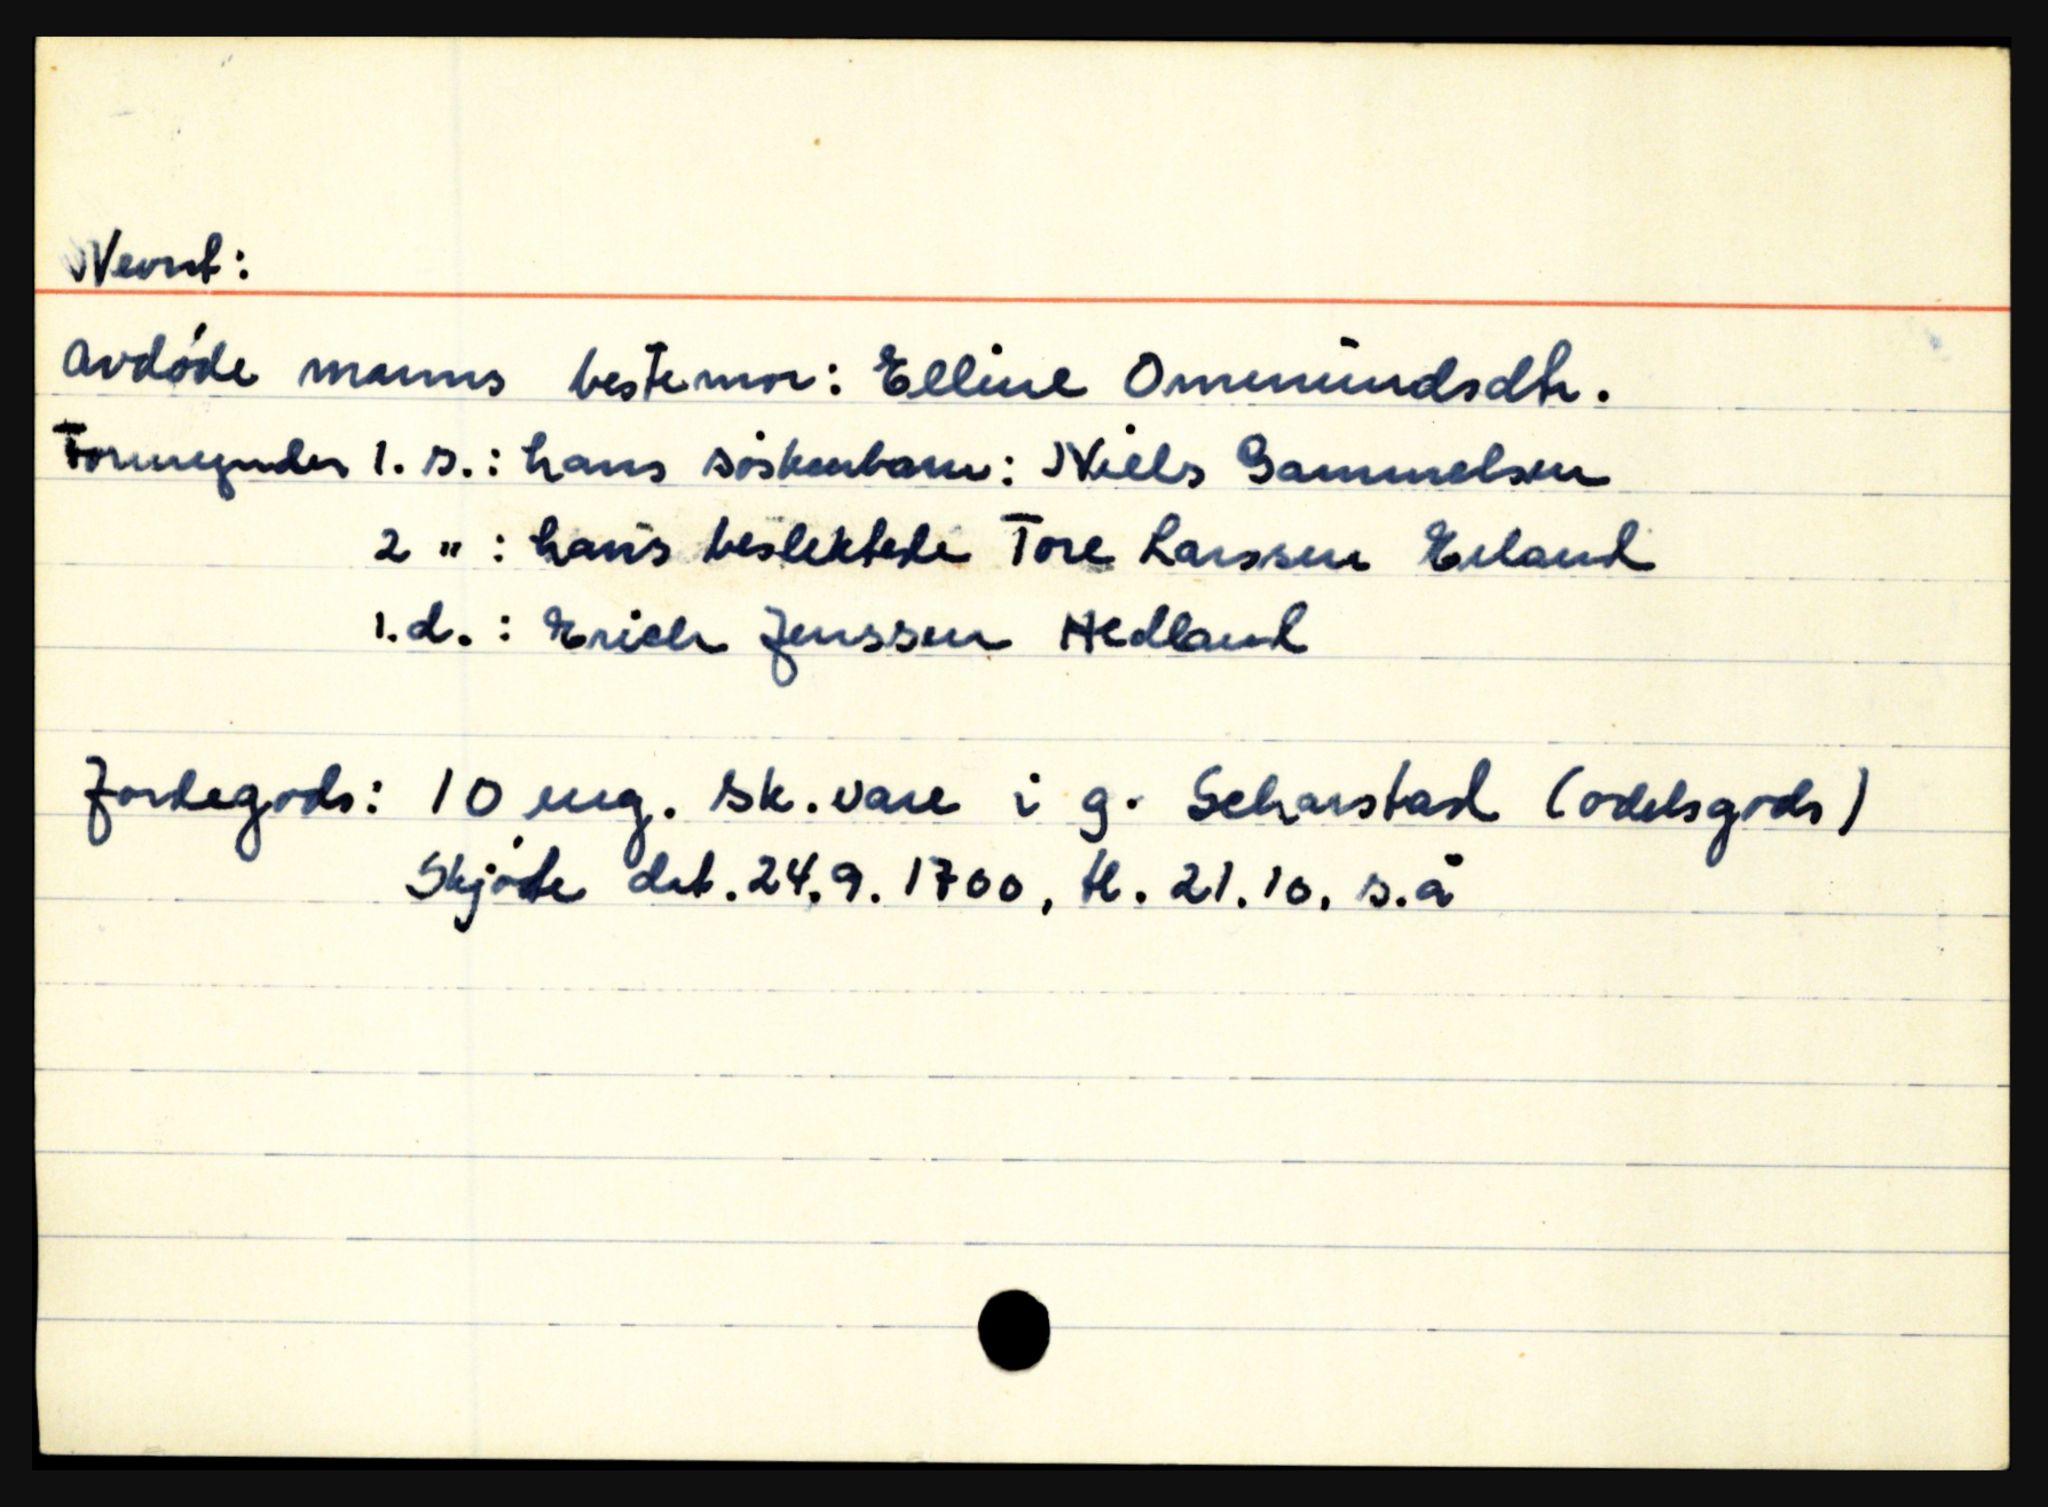 Nevnt:
Avdøde manns bestemor: Elline Ommundsdtr.
Formynder 1. s.: hans søskenbarn: Niels Gammelsen
2 " : hans beslektede Tore Larssen Erland
1. d. : Erich Jenssen Hedland
Jordegods: 10 eng. sk. vare i g. Scharstad (odelsgods)
Skjøte dat. 24.9. 1700, tl. 21.10. s.å